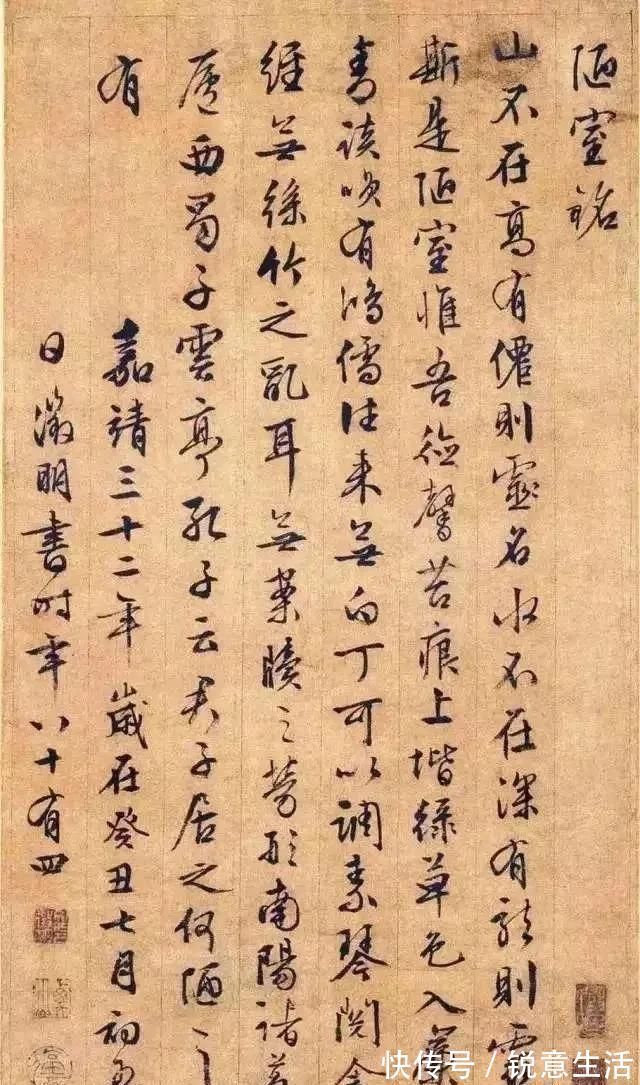 陋室銘
山不在高有僊則靈名水不在深有龍則靈
斯是陋室惟吾德馨苔痕上堦綠草色入簾
青談咲有鴻儒往來無白丁可以調素琴閱金
經無絲竹之亂耳無案牘之勞形南陽諸葛
廬西蜀子雲亭孔子云君子居之何陋之
有 嘉靖三十二年歲在癸丑七月初
日徵明書時年八十有四
快传号 / 锐意生活